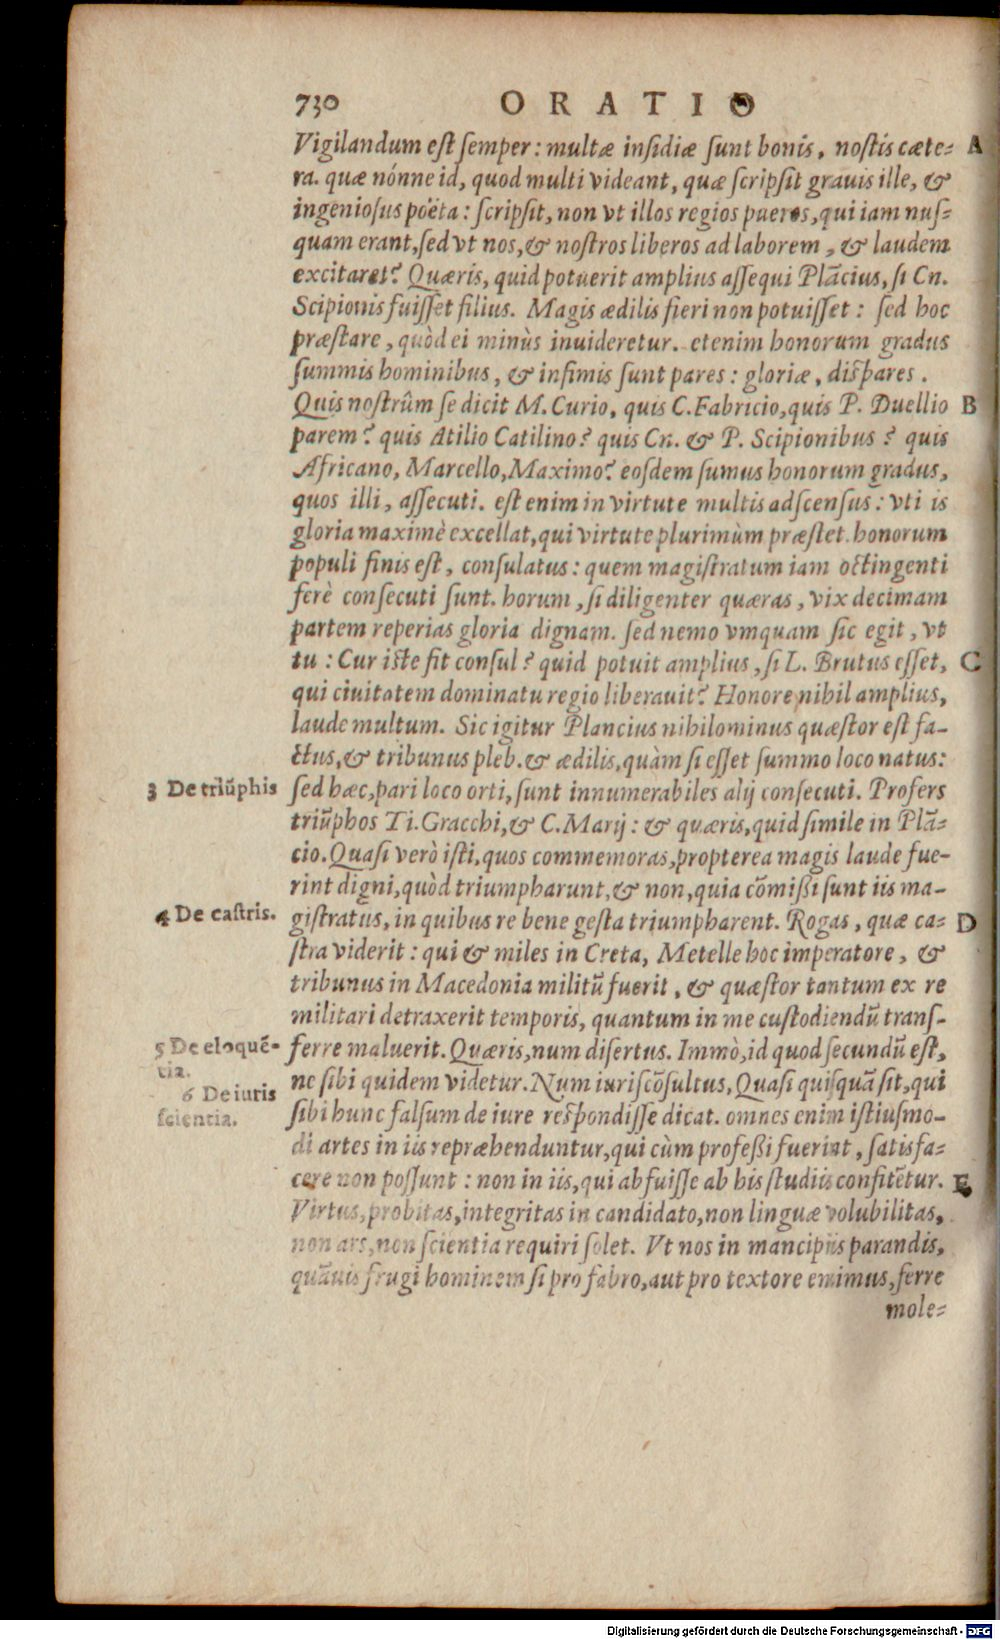 730 ORATIO
Vigilandum est semper: multæ insidiæ sunt bonis, nostis cæte= A
ra. quæ nónne id, quod multi videant, quæ scripsit grauis ille, &
ingeniosus poëta: scripsit, non vt illos regios pueros, qui iam nus=
quam erant, sed vt nos, & nostros liberos ad laborem, & laudem
excitaret? Quæris, quid potuerit amplius assequi Plācius, si Cn.
Scipionis fuisset filius. Magis ædilis fieri non potuisset: sed hoc
præstare, quòd ei minùs inuideretur. etenim honorum gradus
summis hominibus, & infimis sunt pares: gloriæ, dispares.
Quis nostrûm se dicit M. Curio, quis C. Fabricio, quis P. Duellio B
parem? quis Atilio Catilino? quis Cn. & P. Scipionibus? quis
Africano, Marcello, Maximo? eosdem sumus honorum gradus,
quos illi, assecuti. est enim in virtute multis adscensus: vti is
gloria maximè excellat, qui virtute plurimùm præstet. honorum
populi finis est, consulatus: quem magistratum iam octingenti
ferè consecuti sunt. horum, si diligenter quæras, vix decimam
partem reperias gloria dignam. sed nemo vmquam sic egit, vt
tu: Cur iste fit consul? quid potuit amplius, si L. Brutus esset, C
qui ciuitatem dominatu regio liberauit? Honore nihil amplius,
laude multum. Sic igitur Plancius nihilominus quæstor est fa-
ctus, & tribunus pleb. & ædilis, quàm si esset summo loco natus:
3 De triūphis sed hæc, pari loco orti, sunt innumerabiles alij consecuti. Profers
triūphos Ti. Gracchi, & C. Marij: & quæris, quid simile in Plā=
cio. Quasi verò isti, quos commemoras, propterea magis laude fue-
rint digni, quòd triumpharunt, & non, quia cōmissi sunt iis ma-
4 De castris. gistratus, in quibus re bene gesta triumpharent. Rogas, quæ ca= D
stra viderit: qui & miles in Creta, Metelle hoc imperatore, &
tribunus in Macedonia militū fuerit, & quæstor tantum ex re
militari detraxerit temporis, quantum in me custodiendū trans-
5 De eloquē- ferre maluerit. Quæris, num disertus. Immò, id quod secundū est,
tia. ne sibi quidem videtur. Num iuriscōsultus, Quasi quisquā sit, qui
6 De iuris
scientia. sibi hunc falsum de iure respondisse dicat. omnes enim istiusmo-
di artes in iis repræhenduntur, qui cùm professi fuerint, satisfa=
cere non possunt: non in iis, qui abfuisse ab his studiis confitētur. E
Virtus, probitas, integritas in candidato, non linguæ volubilitas,
non ars, non scientia requiri solet. Vt nos in mancipiis parandis,
quāuis frugi hominem si pro fabro, aut pro textore emimus, ferre
mole=
Digitalisierung gefördert durch die Deutsche Forschungsgemeinschaft - DFG